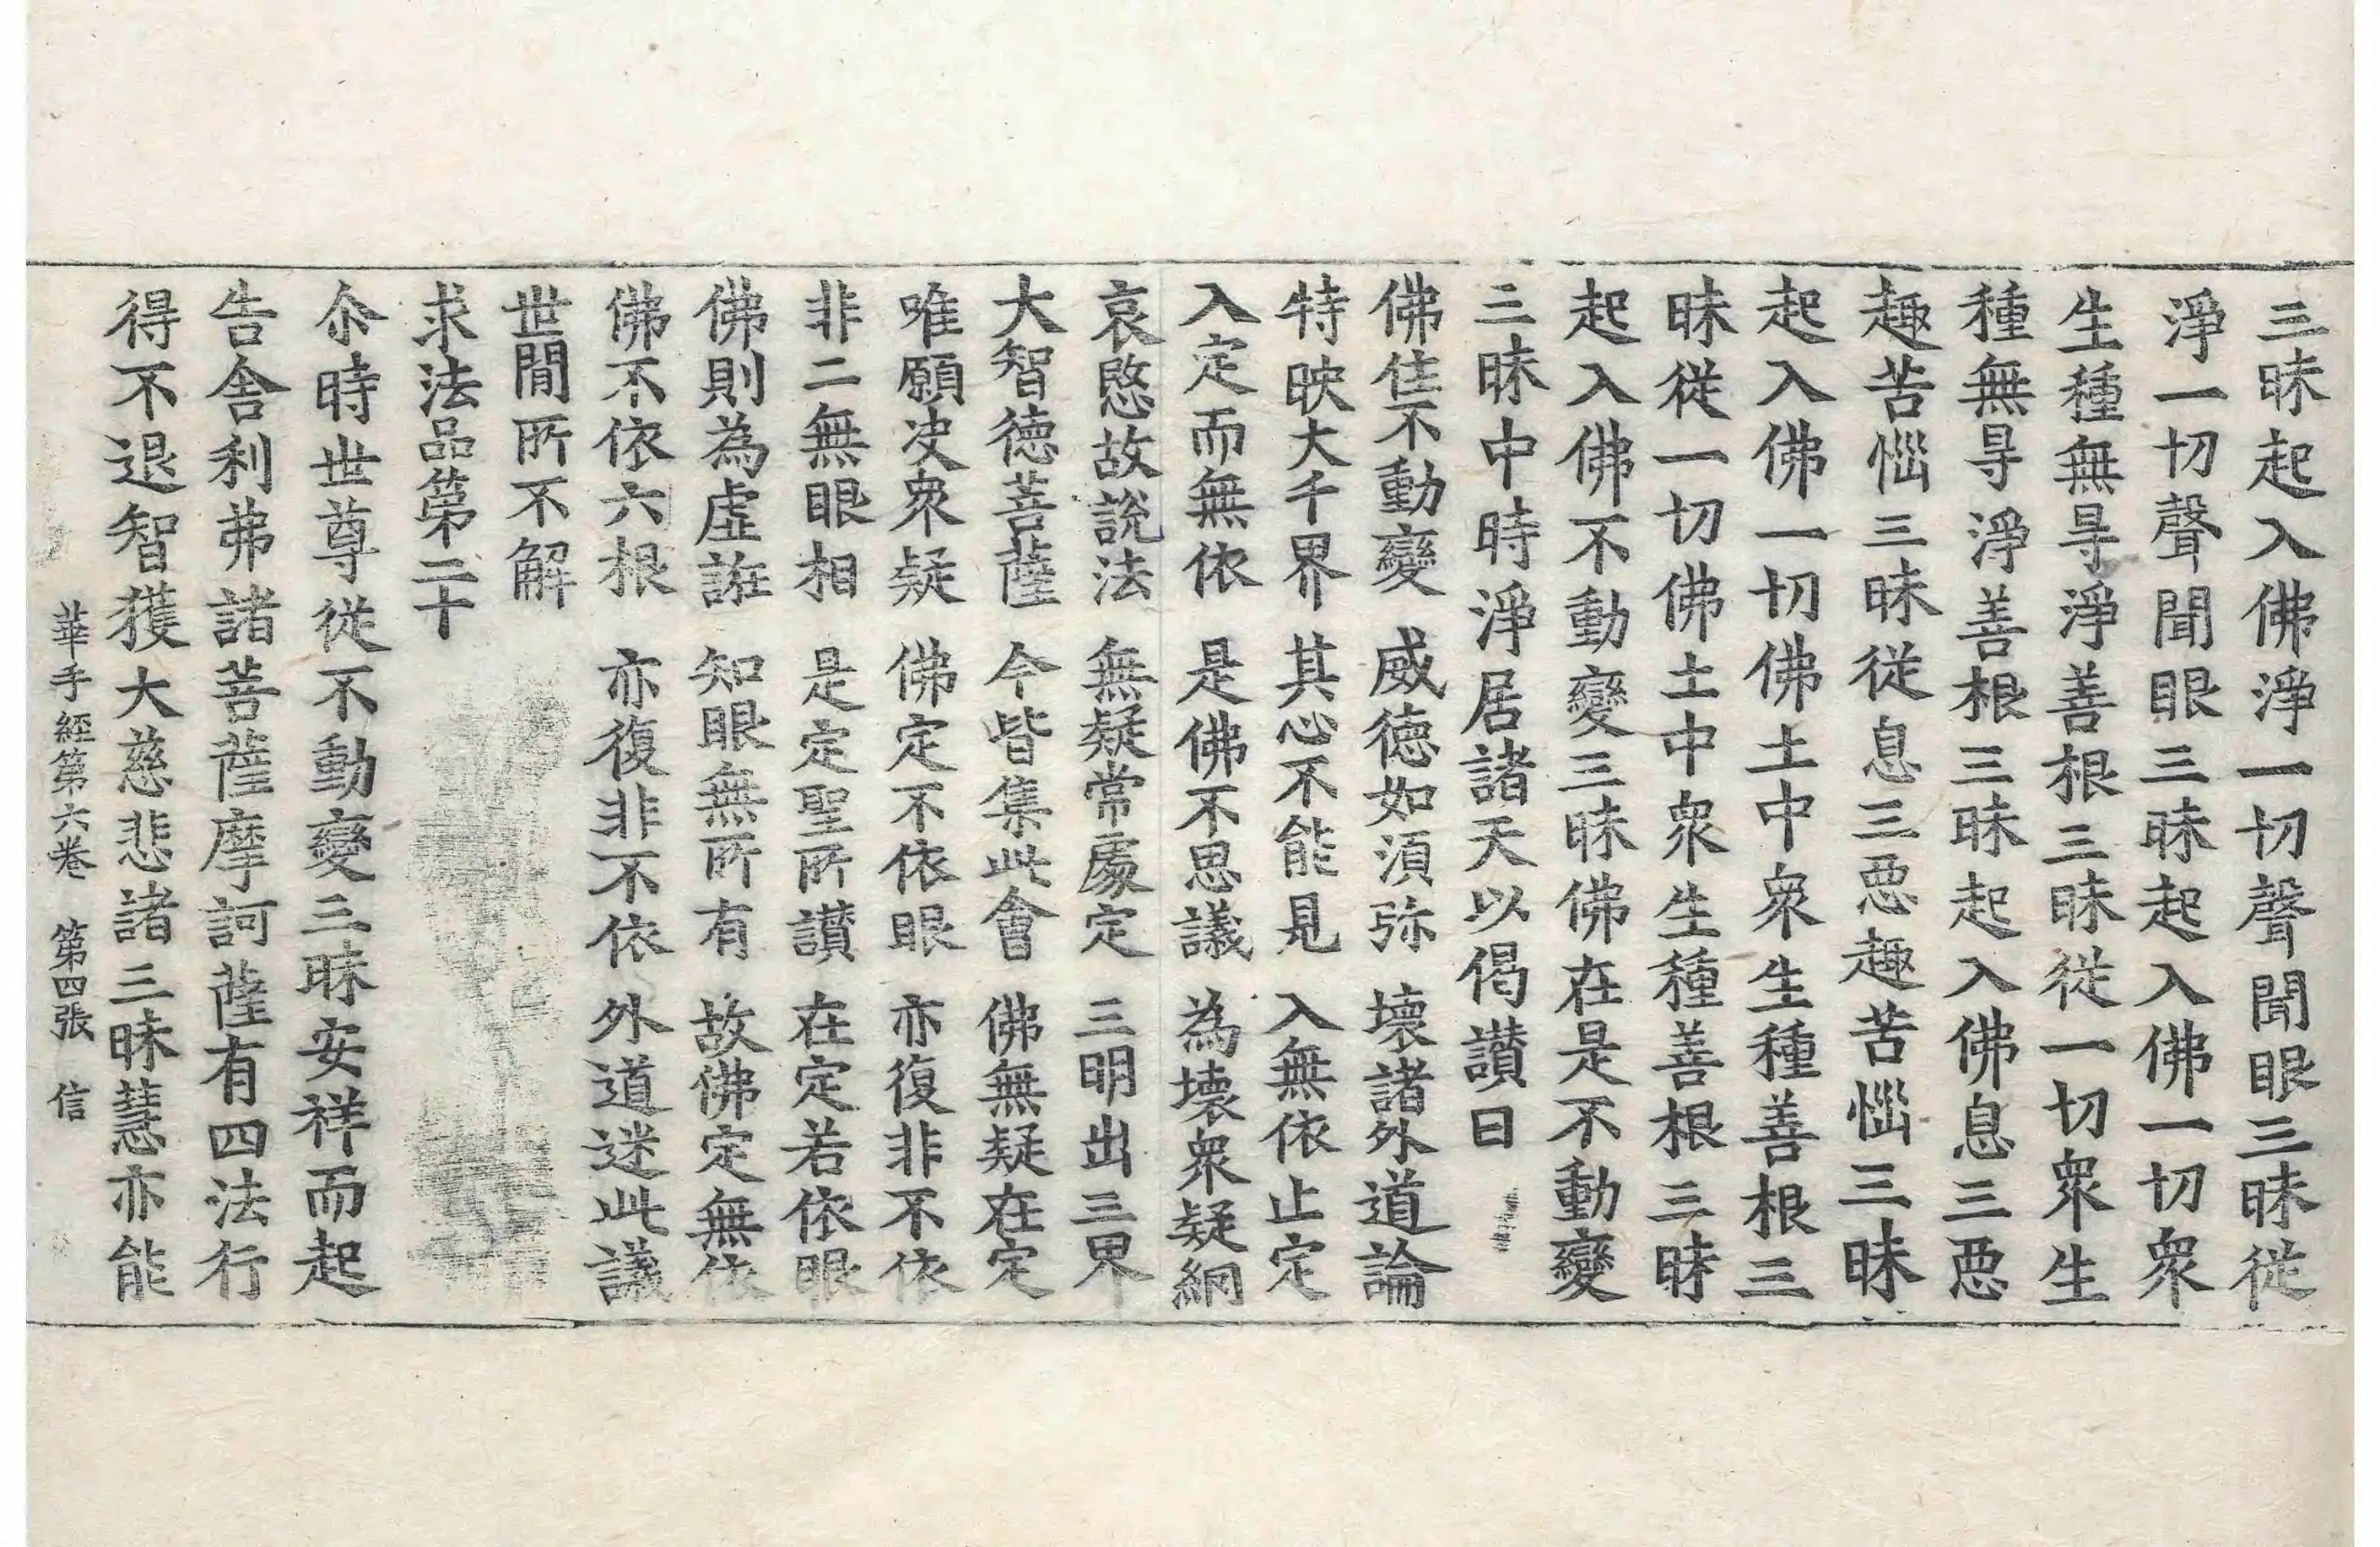 三昧起入佛淨一切聲聞眼三昧從
淨一切聲聞眼三昧起入佛一切衆
生種無㝵淨善根三昧從一切衆生
種無㝵淨善根三昧起入佛息三惡
趣苦惱三昧從息三惡趣苦惱三昧
起入佛一切佛土中衆生種善根三
昧從一切佛土中衆生種善根三昧
起入佛不動變三昧佛在是不動變
三昧中時淨居諸天以偈讃曰
佛住不動變　威德如須弥　壞諸外道論
特映大千界　其心不能見　入無依止定
入定而無依　是佛不思議　為壞衆疑網
哀愍故説法　無疑常處定　三明出三界
大智德菩薩　今皆集此會　佛無疑在定
唯願决衆疑　佛定不依眼　亦復非不依
非二無眼相　是定聖所讃　在定若依眼
佛則為虛誑　知眼無所有　故佛定無依
佛不依六根　亦復非不依　外道迷此議
世間所不解
求法品第二十
尒時世尊從不動變三昧安祥而起
告舍利弗諸菩薩摩訶薩有四法行
得不退智獲大慈悲諸三昧慧亦能
華手經第六卷　第四張　信